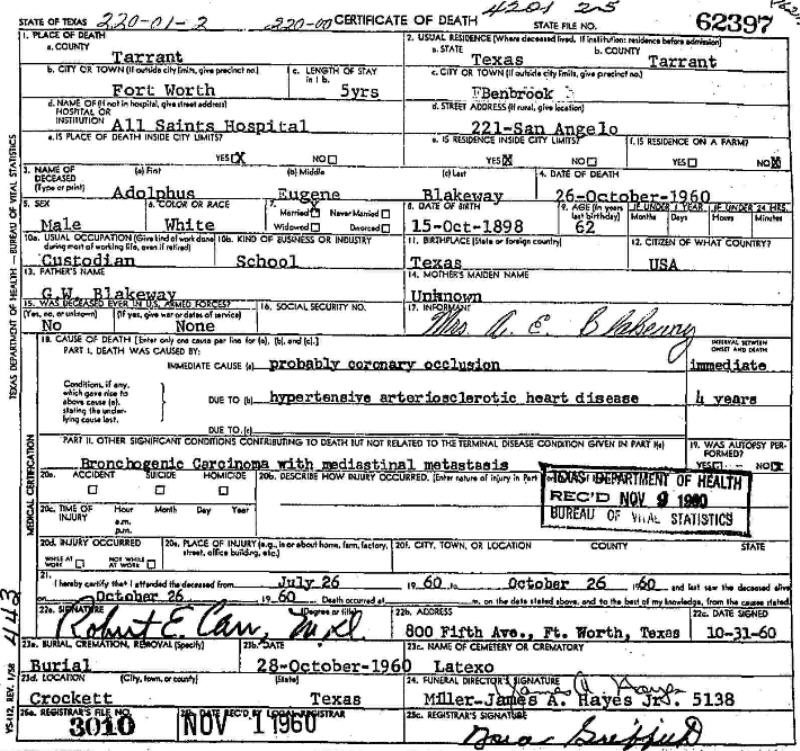 STATE OF TEXAS 220-01-2 220-00 CERTIFICATE OF DEATH 4201 25 STATE FILE NO. 62397
1. PLACE OF DEATH
a. COUNTY
Tarrant
2. USUAL RESIDENCE (Where deceased lived. If institution: residence before admission)
a. STATE b. COUNTY
Texas Tarrant
b. CITY OR TOWN (If outside city limits, give precinct no.) c. LENGTH OF STAY in 1 b.
Fort Worth 5yrs
c. CITY OR TOWN (If outside city limits, give precinct no.)
FBenbrook
d. NAME OF (If not in hospital, give street address)
HOSPITAL OR
INSTITUTION All Saints Hospital
d. STREET ADDRESS (If rural, give location)
221-San Angelo
e. IS PLACE OF DEATH INSIDE CITY LIMITS?
YES X NO
e. IS RESIDENCE INSIDE CITY LIMITS? f. IS RESIDENCE ON A FARM?
YES X NO YES NO X
3. NAME OF DECEASED (Type or print) (a) First (b) Middle (c) Last 4. DATE OF DEATH
Adolphus Eugene Blakeway 26-October-1960
5. SEX 6. COLOR OR RACE 7. Married X Never Married Widowed Divorced 8. DATE OF BIRTH 9. AGE (In years last birthday) IF UNDER 1 YEAR Months Days IF UNDER 24 HRS. Hours Minutes
Male White 15-Oct-1898 62
10a. USUAL OCCUPATION (Give kind of work done during most of working life, even if retired) 10b. KIND OF BUSINESS OR INDUSTRY 11. BIRTHPLACE (State or foreign country) 12. CITIZEN OF WHAT COUNTRY?
Custodian School Texas USA
13. FATHER'S NAME 14. MOTHER'S MAIDEN NAME
G.W. Blakeway Unknown
15. WAS DECEASED EVER IN U.S. ARMED FORCES? 16. SOCIAL SECURITY NO. 17. INFORMANT
(Yes, no, or unknown) (If yes, give war or dates of service)
No None Mrs. A. E.
18. CAUSE OF DEATH [Enter only one cause per line for (a), (b), and (c).] INTERVAL BETWEEN ONSET AND DEATH
PART I. DEATH WAS CAUSED BY:
IMMEDIATE CAUSE (a) probably coronary occlusion immediate
Conditions, if any, which gave rise to above cause (a), stating the underlying cause last.
DUE TO (b) hypertensive arteriosclerotic heart disease 4 years
DUE TO (c)
PART II. OTHER SIGNIFICANT CONDITIONS CONTRIBUTING TO DEATH BUT NOT RELATED TO THE TERMINAL DISEASE CONDITION GIVEN IN PART I(a) 19. WAS AUTOPSY PERFORMED?
Bronchogenic Carcinoma with mediastinal metastasis YES NO X
20a. ACCIDENT SUICIDE HOMICIDE 20b. DESCRIBE HOW INJURY OCCURRED. (Enter nature of injury in Part
TEXAS DEPARTMENT OF HEALTH
REC'D NOV 9 1960
BUREAU OF VITAL STATISTICS
20c. TIME OF INJURY Hour Month Day Year
a.m.
p.m.
20d. INJURY OCCURRED 20e. PLACE OF INJURY (e.g., in or about home, farm, factory, street, office building, etc.) 20f. CITY, TOWN, OR LOCATION COUNTY STATE
WHILE AT WORK NOT WHILE AT WORK
21. I hereby certify that I attended the deceased from July 26 19 60 to October 26 19 60 and last saw the deceased alive
on October 26 19 60 Death occurred at m. on the date stated above, and to the best of my knowledge, from the causes stated.
22a. SIGNATURE (Degree or title) 22b. ADDRESS 22c. DATE SIGNED
Robert E. Carr, M.D. 800 Fifth Ave., Ft. Worth, Texas 10-31-60
23a. BURIAL, CREMATION, REMOVAL (Specify) 23b. DATE 23c. NAME OF CEMETERY OR CREMATORY
Burial 28-October-1960 Latexo
23d. LOCATION (City, town, or county) (State) 24. FUNERAL DIRECTOR'S SIGNATURE
James A. Hayes
Crockett Texas Miller-James A. Hayes Jr. 5138
25a. REGISTRAR'S FILE NO. 25b. DATE REC'D BY LOCAL REGISTRAR 25c. REGISTRAR'S SIGNATURE
3010 NOV 1 1960
TEXAS DEPARTMENT OF HEALTH — BUREAU OF VITAL STATISTICS
MEDICAL CERTIFICATION
443
VS-112, REV. 1/58